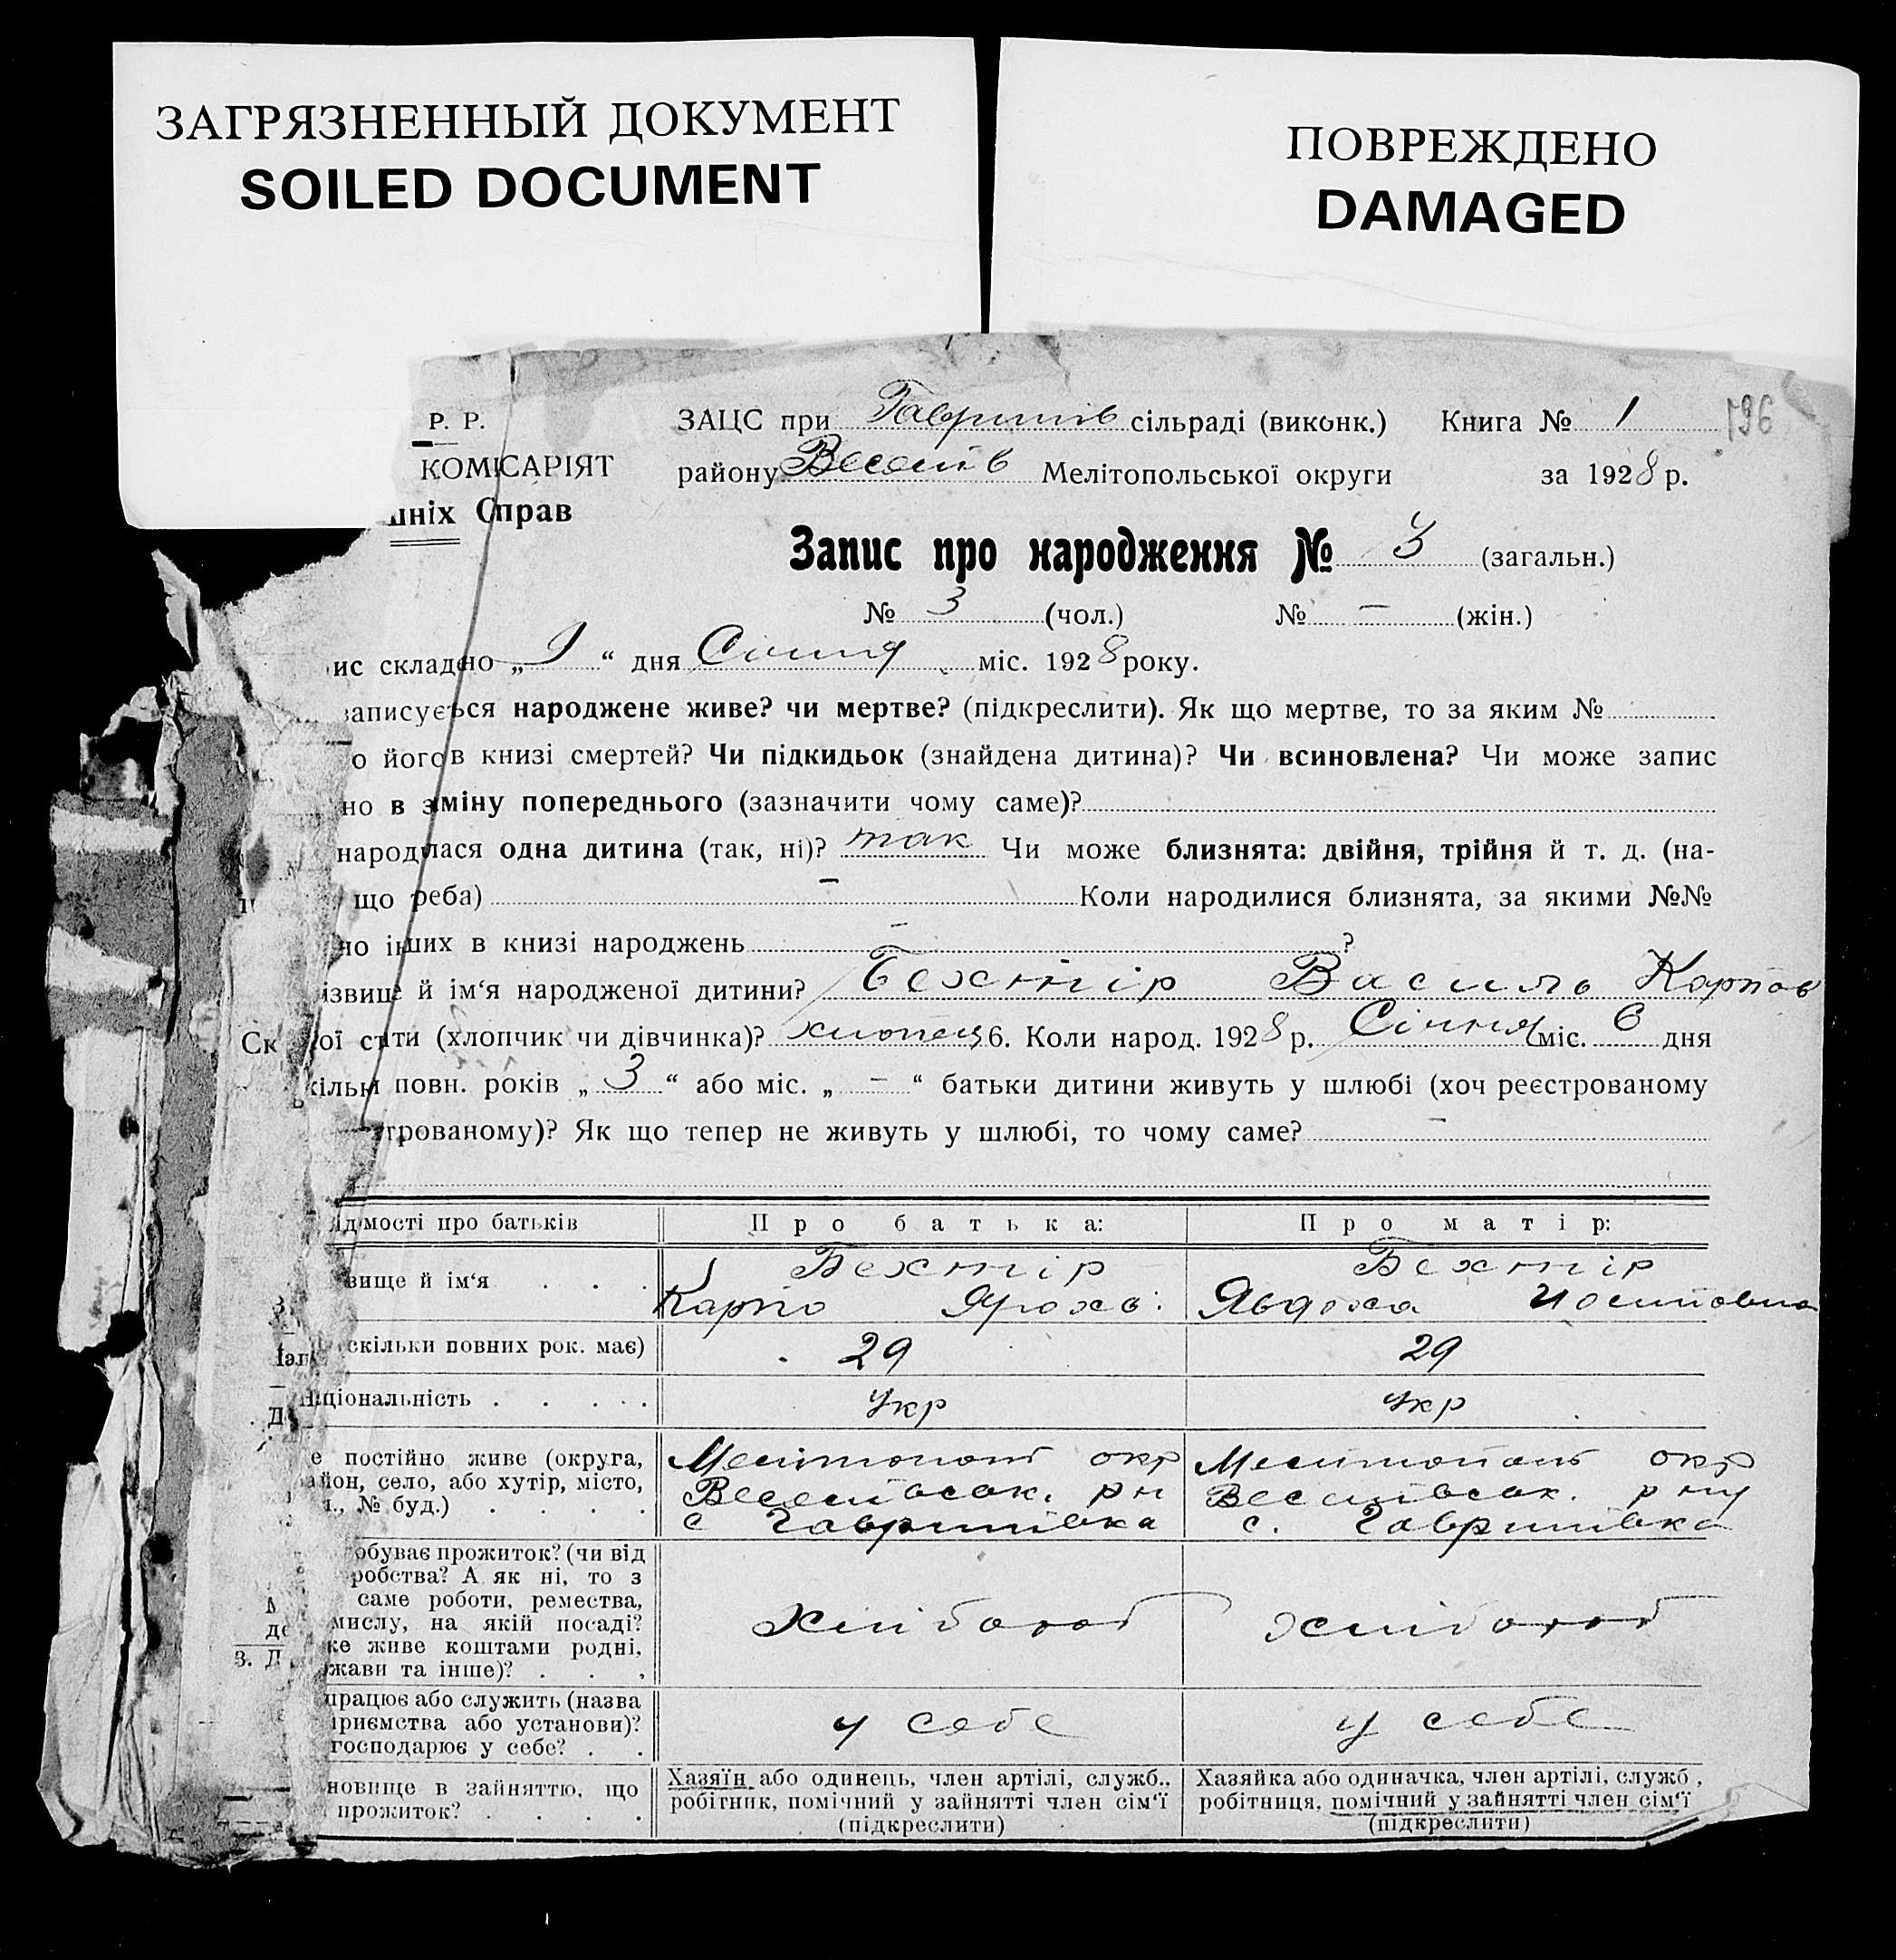 ЗАГРЯЗНЕННЫЙ ДОКУМЕНТ
SOILED DOCUMENT
ПОВРЕЖДЕНО
DAMAGED
Р. Р.
КОМІСАРІЯТ
шніх Справ
ЗАЦС при Гаврилів сільраді (виконк.) Книга № 1 196
району Веселів Мелітопольської округи за 1928 р.
Запис про народження № 3 (загальн.)
№ 3 (чол.) № – (жін.)
ис складено „ 9 “ дня Січня міс. 1928 року.
записується народжене живе? чи мертве? (підкреслити). Як що мертве, то за яким №
о його в книзі смертей? Чи підкидьок (знайдена дитина)? Чи всиновлена? Чи може запис
но в зміну попереднього (зазначити чому саме)?
народилася одна дитина (так, ні)? так Чи може близнята: двійня, трійня й т. д. (на-
що треба) – Коли народилися близнята, за якими №№
но інших в книзі народжень – ?
ізвище й ім‘я народженої дитини? Бехтір Василь Карпов
ої стати (хлопчик чи дівчинка)? хлопець 6. Коли народ. 1928 р. Січня міс. 6 дня
кільки повн. років „ 3 “ або міс. „ – “ батьки дитини живуть у шлюбі (хоч реєстрованому
трованому)? Як що тепер не живуть у шлюбі, то чому саме? –
ідомості про батьків Про батька: Про матір:
вище й ім‘я . . . Бехтір Бехтір
Карпо Явдоха
скільки повних рок. має) 29 29
національність . . . . . Укр Укр
е постійно живе (округа, Мелітопол окр Мелітополь окр
айон, село, або хутір, місто, Веселівськ. рн Веселівськ. р ну
л., № буд.) . . . . с Гаврилівка с. Гаврилівка
обуває прожиток? (чи від
робства? А як ні, то з
саме роботи, ремества,
мислу, на якій посаді? Хлібороб Хлібороб
же живе коштами родні,
жави та інше)? . . .
працює або служить (назва
приємства або установи)? у себе у себе
господарює у себе? . .
новище в зайняттю, що Хазяїн або одинець, член артілі, служб., Хазяйка або одиначка, член артілі, служб.,
прожиток? . . . . робітник, помічний у зайнятті член сім‘ї робітниця, помічний у зайнятті член сім‘ї
(підкреслити) (підкреслити)